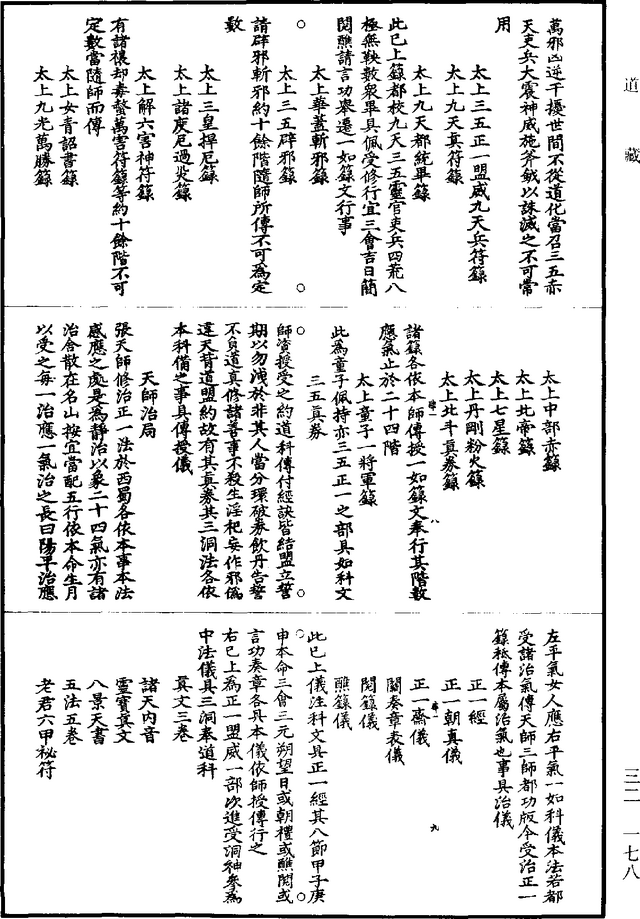 道藏
萬邪凶逆干擾世間不從道化當召三五赤
天吏兵大震神威施斧鉞以誅滅之不可常
用
太上三五正一盟威九天兵符籙
太上九天真符籙
太上九天都統畢籙
此已上籙都校九天三五靈官吏兵四荒八
極無鞅數衆畢具佩受修行宜三會吉日簡
閱醮請言功舉遷一如籙文行事
太上華蓋斬邪籙
太上三五辟邪籙
請辟邪斬邪約十餘階隨師所傳不可為定
數
太上三皇捍厄籙
太上諸度厄過災籙
太上解六害神符籙
有諸禳却毒螫萬害符籙等約十餘階不可
定數當隨師而傳
太上女青詔書籙
太上九光萬勝籙
太上中部赤籙
太上北帝籙
太上七星籙
太上丹剛粉火籙
太上北斗真券籙
諸籙各依本師傳授一如籙文奉行其階數
應氣止於二十四階
八
太上童子一將軍籙
此為童子佩持亦三五正一之部具如科文
三五真券
師資授受之約道科傳付經訣皆結盟立誓
期以勿洩於非其人當分環破券飲丹告誓
不負道真修諸善事不殺生淫祀妄作邪偽
違天背道盟約故有其真券其三洞法各依
本科備之事具傳授儀
天師治局
張天師修治正一法於西蜀各依本事本法
感應之處是為靜治以象二十四氣亦有諸
治舍散在名山按宜當配五行依本命生月
以受之每一治應一氣治之長曰陽平治應
左平氣女人應右平氣一如科儀本法若都
受諸治氣傳天師三師都功版令受治正一
籙祗傳本屬治氣也事具治儀
正一經
正一朝真儀
正一齋儀
九
關奏章表儀
閱籙儀
醮籙儀
此已上儀注科文具正一經其八節甲子庚
申本命三會三元朔望日或朝禮或醮閱或
言功奏章各具本儀依師授傳行之
右已上為正一盟威一部以次進受洞神參為
中法儀具三洞奉道科
真文三卷
諸天內音
靈寶真文
八景天書
五法五卷
老君六甲祕符
三二一七八